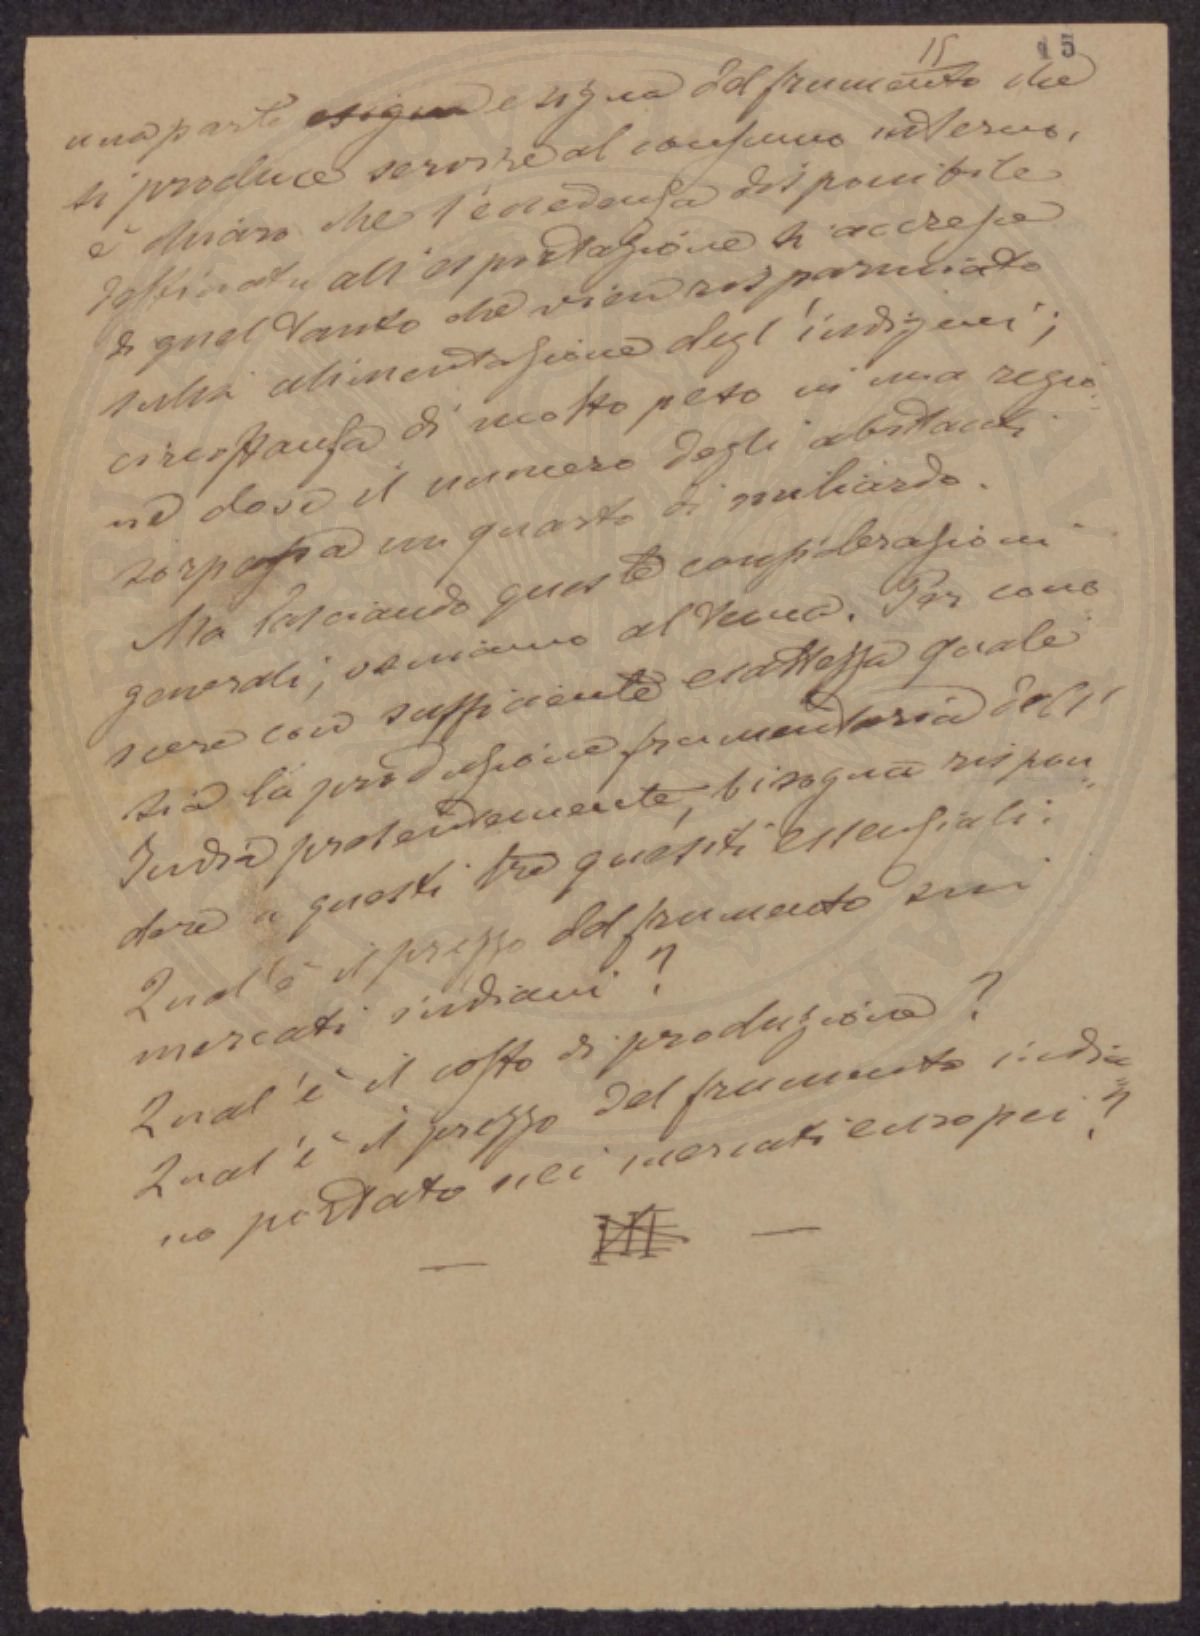 15
15
una parte esigua esigua del frumento che
si produce servire al consumo interno,
è chiaro che l'eccedenza disponibile
destinata all'esportazione si accresce
di quel tanto che vien risparmiato
sulla alimentazione degl'indigeni;
circostanza di molto peso in una regio-
ne dove il numero degli abitanti
sorpassa un quarto di miliardo.
Ma lasciando queste considerazioni
generali, veniamo al tema. Per cono
scere con sufficiente esattezza quale
sia la produzione frumentaria dell'
India presentemente, bisogna rispon-
dere a questi tre quesiti essenziali:
Qual'è il prezzo del frumento sui
mercati indiani?
Qual'è il costo di produzione?
Qual'è il prezzo del frumento india-
no portato nei mercati europei?
— VII —